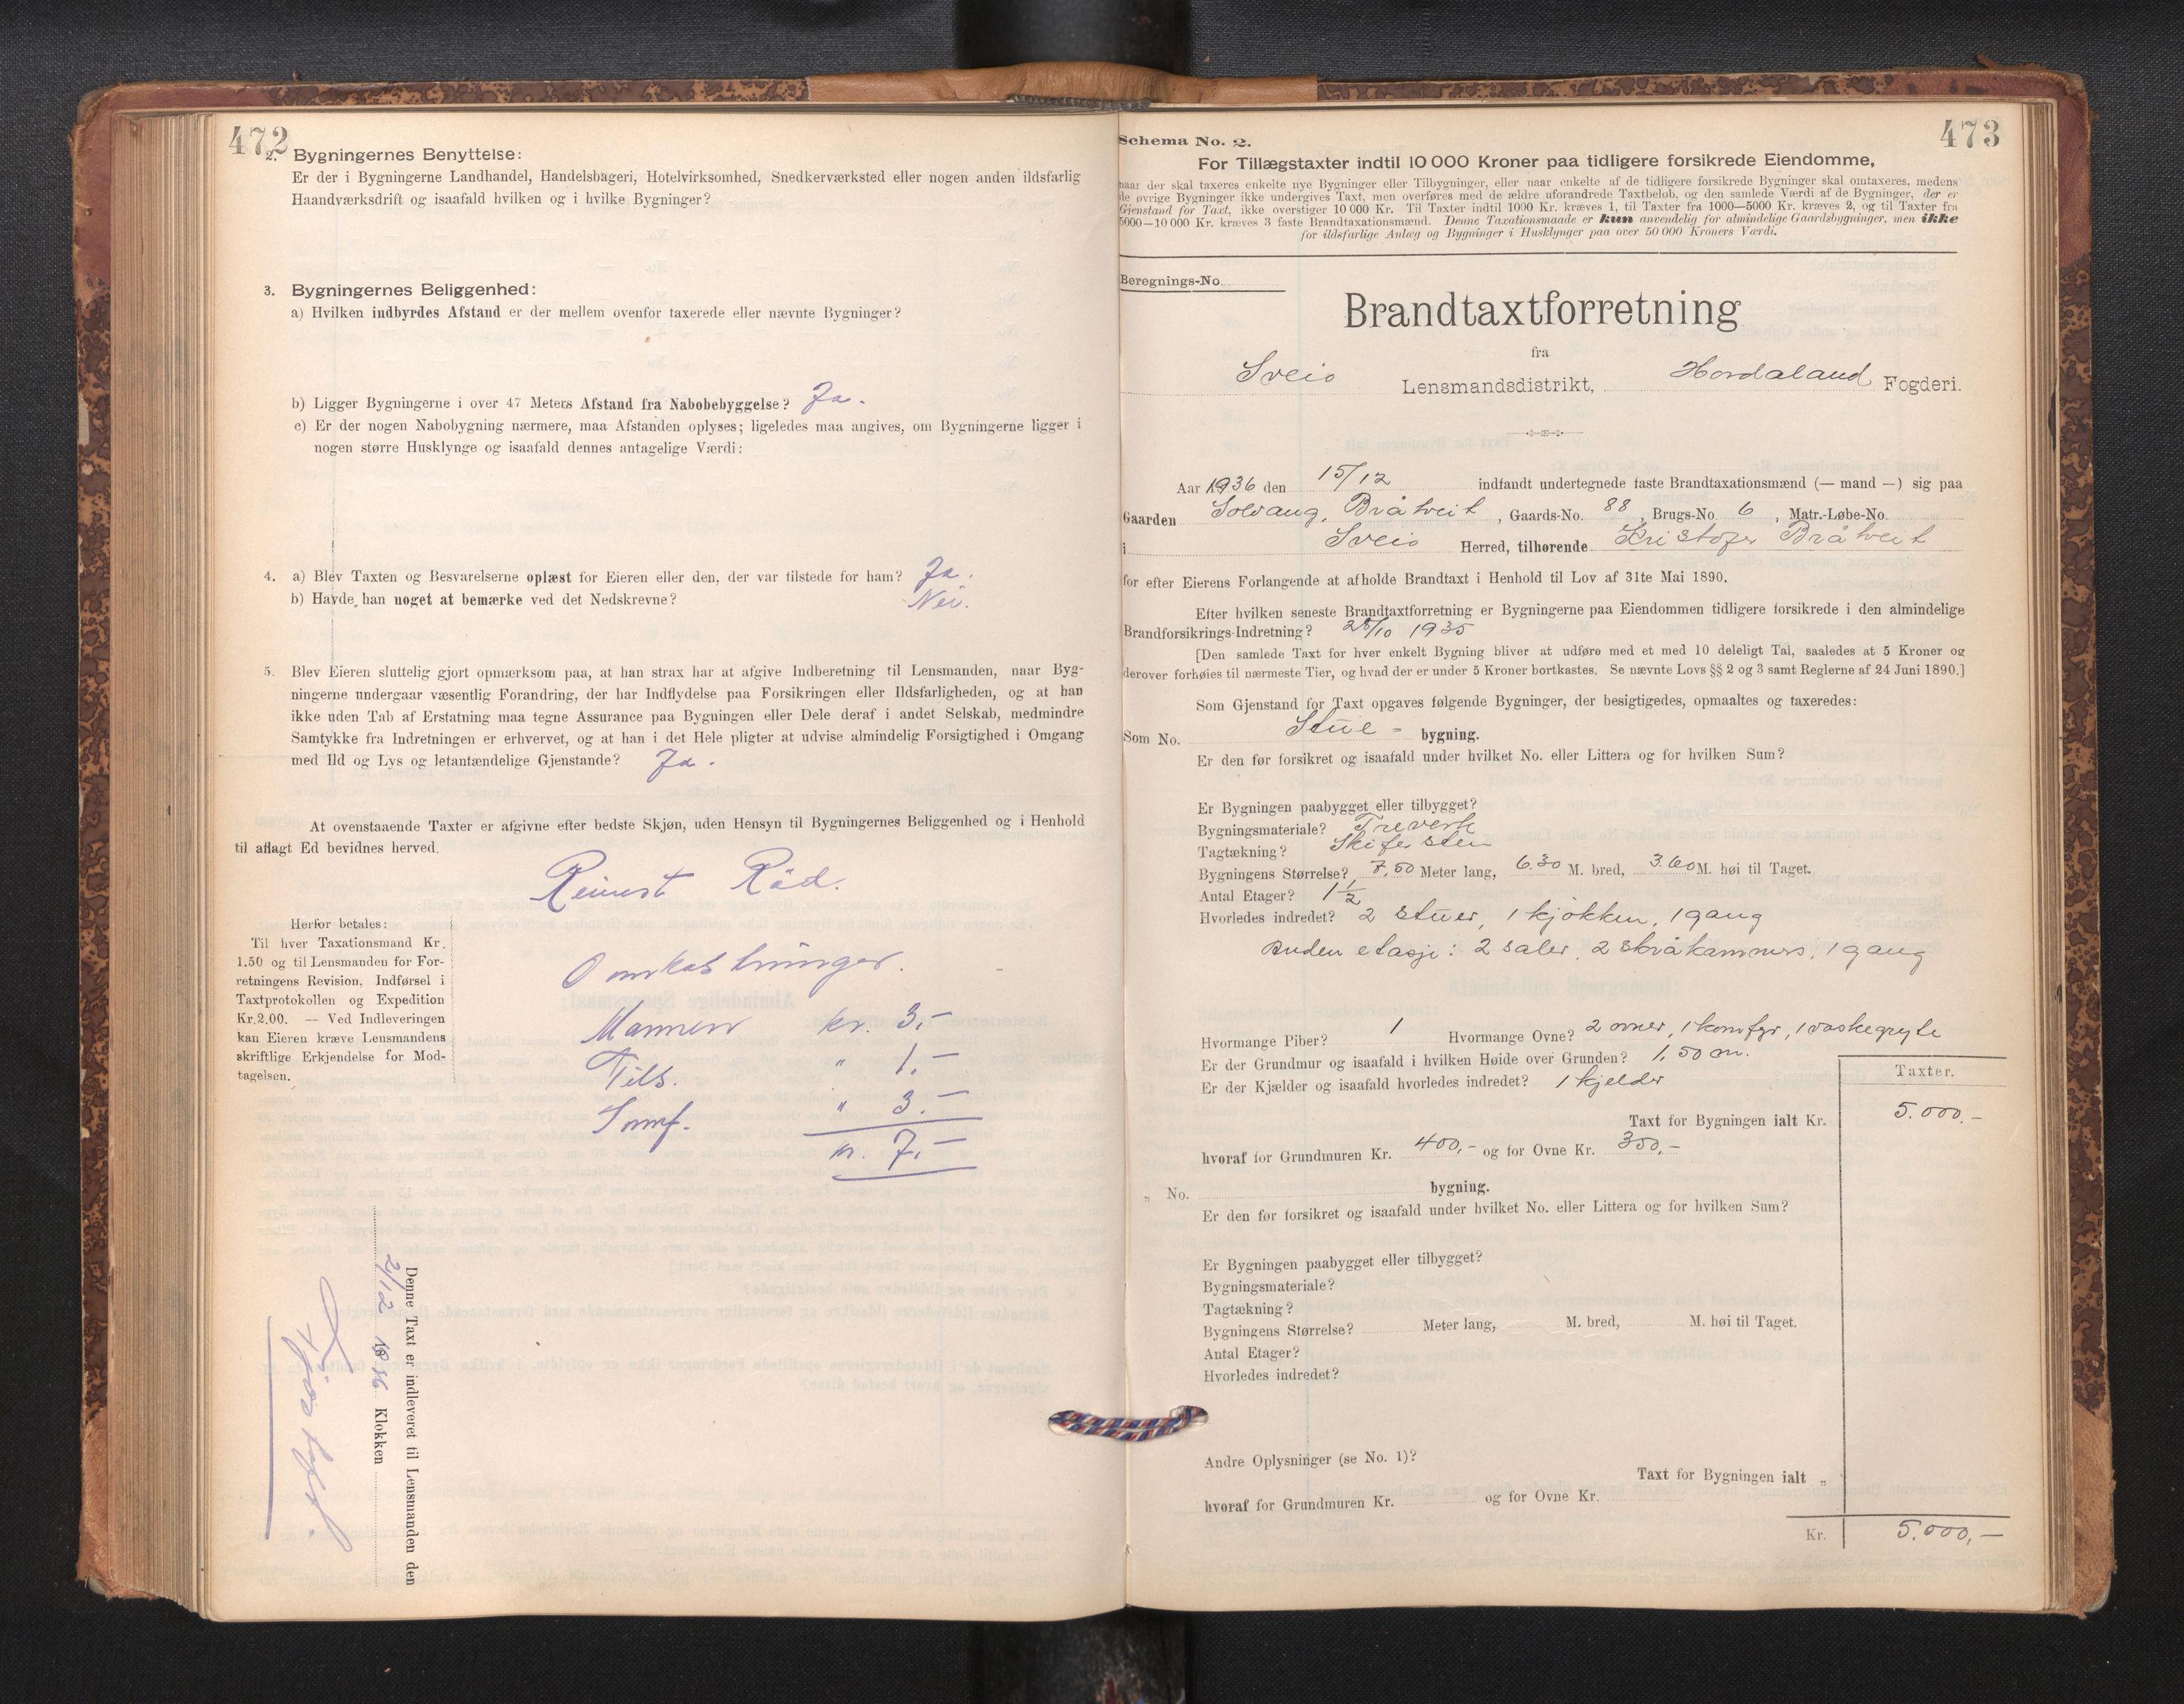 472
2. Bygningernes Benyttelse:
Er der i Bygningerne Landhandel, Handelsbageri, Hotelvirksomhed, Snedkerværksted eller nogen anden ildsfarlig
Haandværksdrift og isaafald hvilken og i hvilke Bygninger?
3. Bygningernes Beliggenhed:
a) Hvilken indbyrdes Afstand er der mellem ovenfor taxerede eller nævnte Bygninger?
b) Ligger Bygningerne i over 47 Meters Afstand fra Nabobebyggelse? Ja.
c) Er der nogen Nabobygning nærmere, maa Afstanden oplyses; ligeledes maa angives, om Bygningerne ligger i
nogen større Husklynge og isaafald dennes antagelige Værdi:
4. a) Blev Taxten og Besvarelserne oplæst for Eieren eller den, der var tilstede for ham? Ja.
b) Havde han noget at bemærke ved det Nedskrevne? Nei.
5. Blev Eieren sluttelig gjort opmærksom paa, at han strax har at afgive Indberetning til Lensmanden, naar Byg-
ningerne undergaar væsentlig Forandring, der har Indflydelse paa Forsikringen eller Ildsfarligheden, og at han
ikke uden Tab af Erstatning maa tegne Assurance paa Bygningen eller Dele deraf i andet Selskab, medmindre
Samtykke fra Indretningen er erhvervet, og at han i det Hele pligter at udvise almindelig Forsigtighed i Omgang
med Ild og Lys og letantændelige Gjenstande? Ja.
At ovenstaaende Taxter er afgivne efter bedste Skjøn, uden Hensyn til Bygningernes Beliggenhed og i Henhold
til aflagt Ed bevidnes herved.
Reinert Röd.
Herfor betales:
Til hver Taxationsmand Kr.
1.50 og til Lensmanden for For-
retningens Revision, Indførsel i
Taxtprotokollen og Expedition
Kr. 2.00. — Ved Indleveringen
kan Eieren kræve Lensmandens
skriftlige Erkjendelse for Mod-
tagelsen.
Omkostninger.
Mannen kr. 3,-
Tils. " 1,-
" 3.-
kr. 7.-
Denne Taxt er indleveret til Lensmanden den
21/12 1936 Klokken
473
Schema No. 2.
For Tillægstaxter indtil 10 000 Kroner paa tidligere forsikrede Eiendomme,
naar der skal taxeres enkelte nye Bygninger eller Tilbygninger, eller naar enkelte af de tidligere forsikrede Bygninger skal omtaxeres, medens
de øvrige Bygninger ikke undergives Taxt, men overføres med de ældre uforandrede Taxtbeløb, og den samlede Værdi af de Bygninger, der er
Gjenstand for Taxt, ikke overstiger 10 000 Kr. Til Taxter indtil 1000 Kr. kræves 1, til Taxter fra 1000—5000 Kr. kræves 2, og til Taxter fra
5000—10 000 Kr. kræves 3 faste Brandtaxationsmænd. Denne Taxationsmaade er kun anvendelig for almindelige Gaardsbygninger, men ikke
for ildsfarlige Anlæg og Bygninger i Husklynger paa over 50 000 Kroners Værdi.
Beregnings-No.
Brandtaxtforretning
fra
Sveio Lensmandsdistrikt, Hordaland Fogderi.
Aar 1936 den 15/12 indfandt undertegnede faste Brandtaxationsmænd (— mand —) sig paa
Gaarden Solvang, Bråtveit, Gaards-No. 88, Brugs-No. 6, Matr.-Løbe-No.
i Sveio Herred, tilhørende Kristofer Bråtveit
for efter Eierens Forlangende at afholde Brandtaxt i Henhold til Lov af 31te Mai 1890.
Efter hvilken seneste Brandtaxtforretning er Bygningerne paa Eiendommen tidligere forsikrede i den almindelige
Brandforsikrings-Indretning? 28/10 1935
[Den samlede Taxt for hver enkelt Bygning bliver at udføre med et med 10 deleligt Tal, saaledes at 5 Kroner og
derover forhøies til nærmeste Tier, og hvad der er under 5 Kroner bortkastes. Se nævnte Lovs §§ 2 og 3 samt Reglerne af 24 Juni 1890.]
Som Gjenstand for Taxt opgaves følgende Bygninger, der besigtigedes, opmaaltes og taxeredes:
Som No. Stue - bygning.
Er den før forsikret og isaafald under hvilket No. eller Littera og for hvilken Sum?
Er Bygningen paabygget eller tilbygget?
Bygningsmateriale? Treverk
Tagtækning? Skifersten
Bygningens Størrelse? 7,50 Meter lang, 6.30 M. bred, 3.60 M. høi til Taget.
Antal Etager? 1 1/2
Hvorledes indredet? 2 stuer, 1 kjøkken, 1 gang
Anden etasje: 2 saler, 2 skråkammers, 1 gang
Hvormange Piber? 1 Hvormange Ovne? 2 ovner, 1 komfyr, 1 vaskegryte
Er der Grundmur og isaafald i hvilken Høide over Grunden? 1,50 m.
Er der Kjælder og isaafald hvorledes indredet? 1 kjelder
Taxter.
Taxt for Bygningen ialt Kr. 5.000,-
hvoraf for Grundmuren Kr. 400,- og for Ovne Kr. 350,-
„ No. bygning.
Er den før forsikret og isaafald under hvilket No. eller Littera og for hvilken Sum?
Er Bygningen paabygget eller tilbygget?
Bygningsmateriale?
Tagtækning?
Bygningens Størrelse? Meter lang, M. bred, M. høi til Taget.
Antal Etager?
Hvorledes indredet?
Andre Oplysninger (se No. 1)?
Taxt for Bygningen ialt „
hvoraf for Grundmuren Kr. og for Ovne Kr.
Kr. 5.000,-